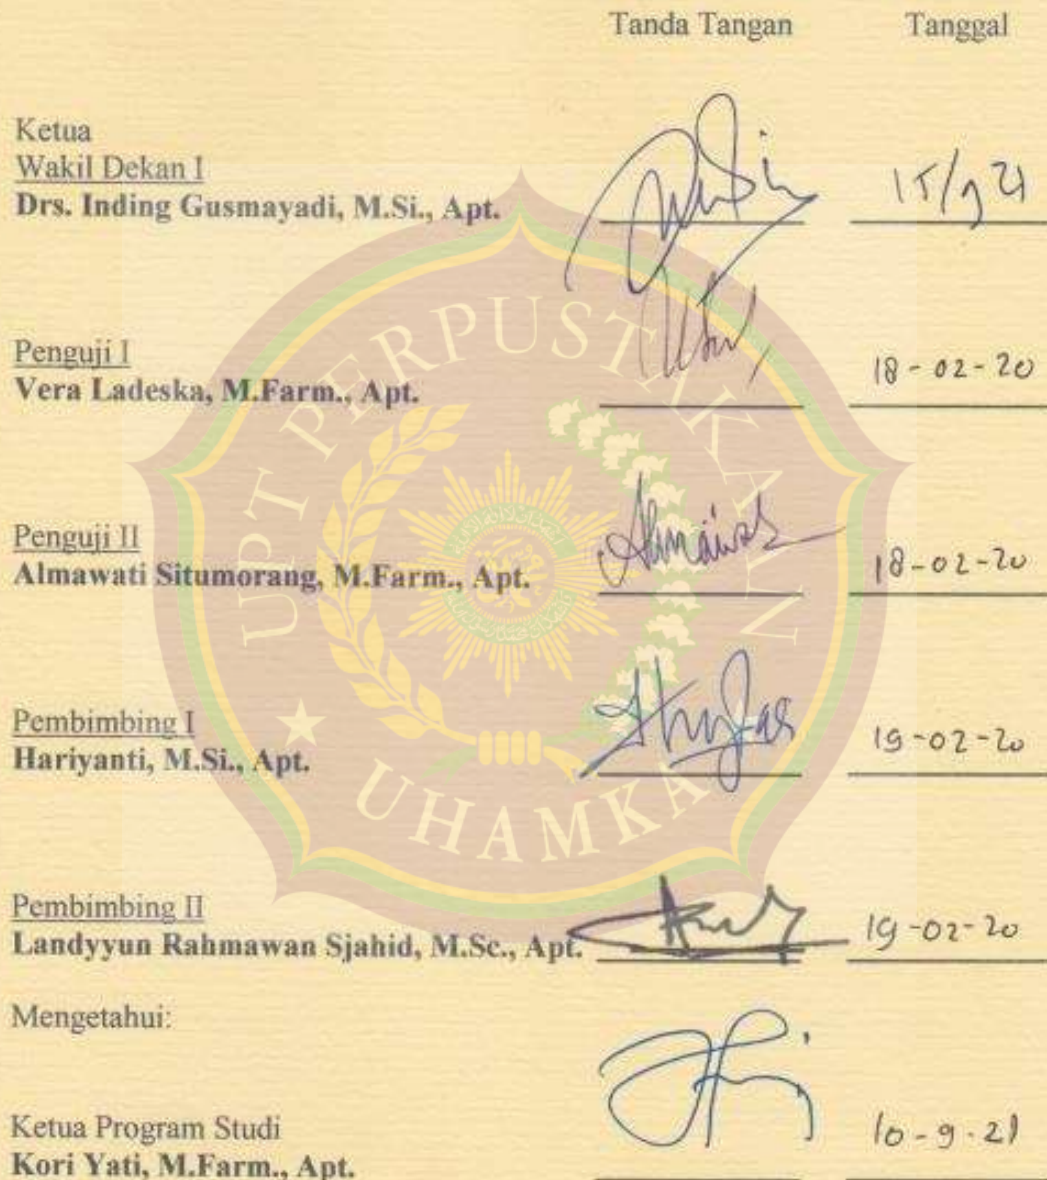 Tanda Tangan Tanggal
Ketua
Wakil Dekan I
Drs. Inding Gusmayadi, M.Si., Apt. 15/9 21
Penguji I
Vera Ladeska, M.Farm., Apt. 18-02-20
Penguji II
Almawati Situmorang, M.Farm., Apt. 18-02-20
Pembimbing I
Hariyanti, M.Si., Apt. 19-02-20
Pembimbing II
Landyyun Rahmawan Sjahid, M.Sc., Apt. 19-02-20
Mengetahui:
Ketua Program Studi
Kori Yati, M.Farm., Apt. 10-9-21
UPT PERPUSTAKAAN
UHAMKA